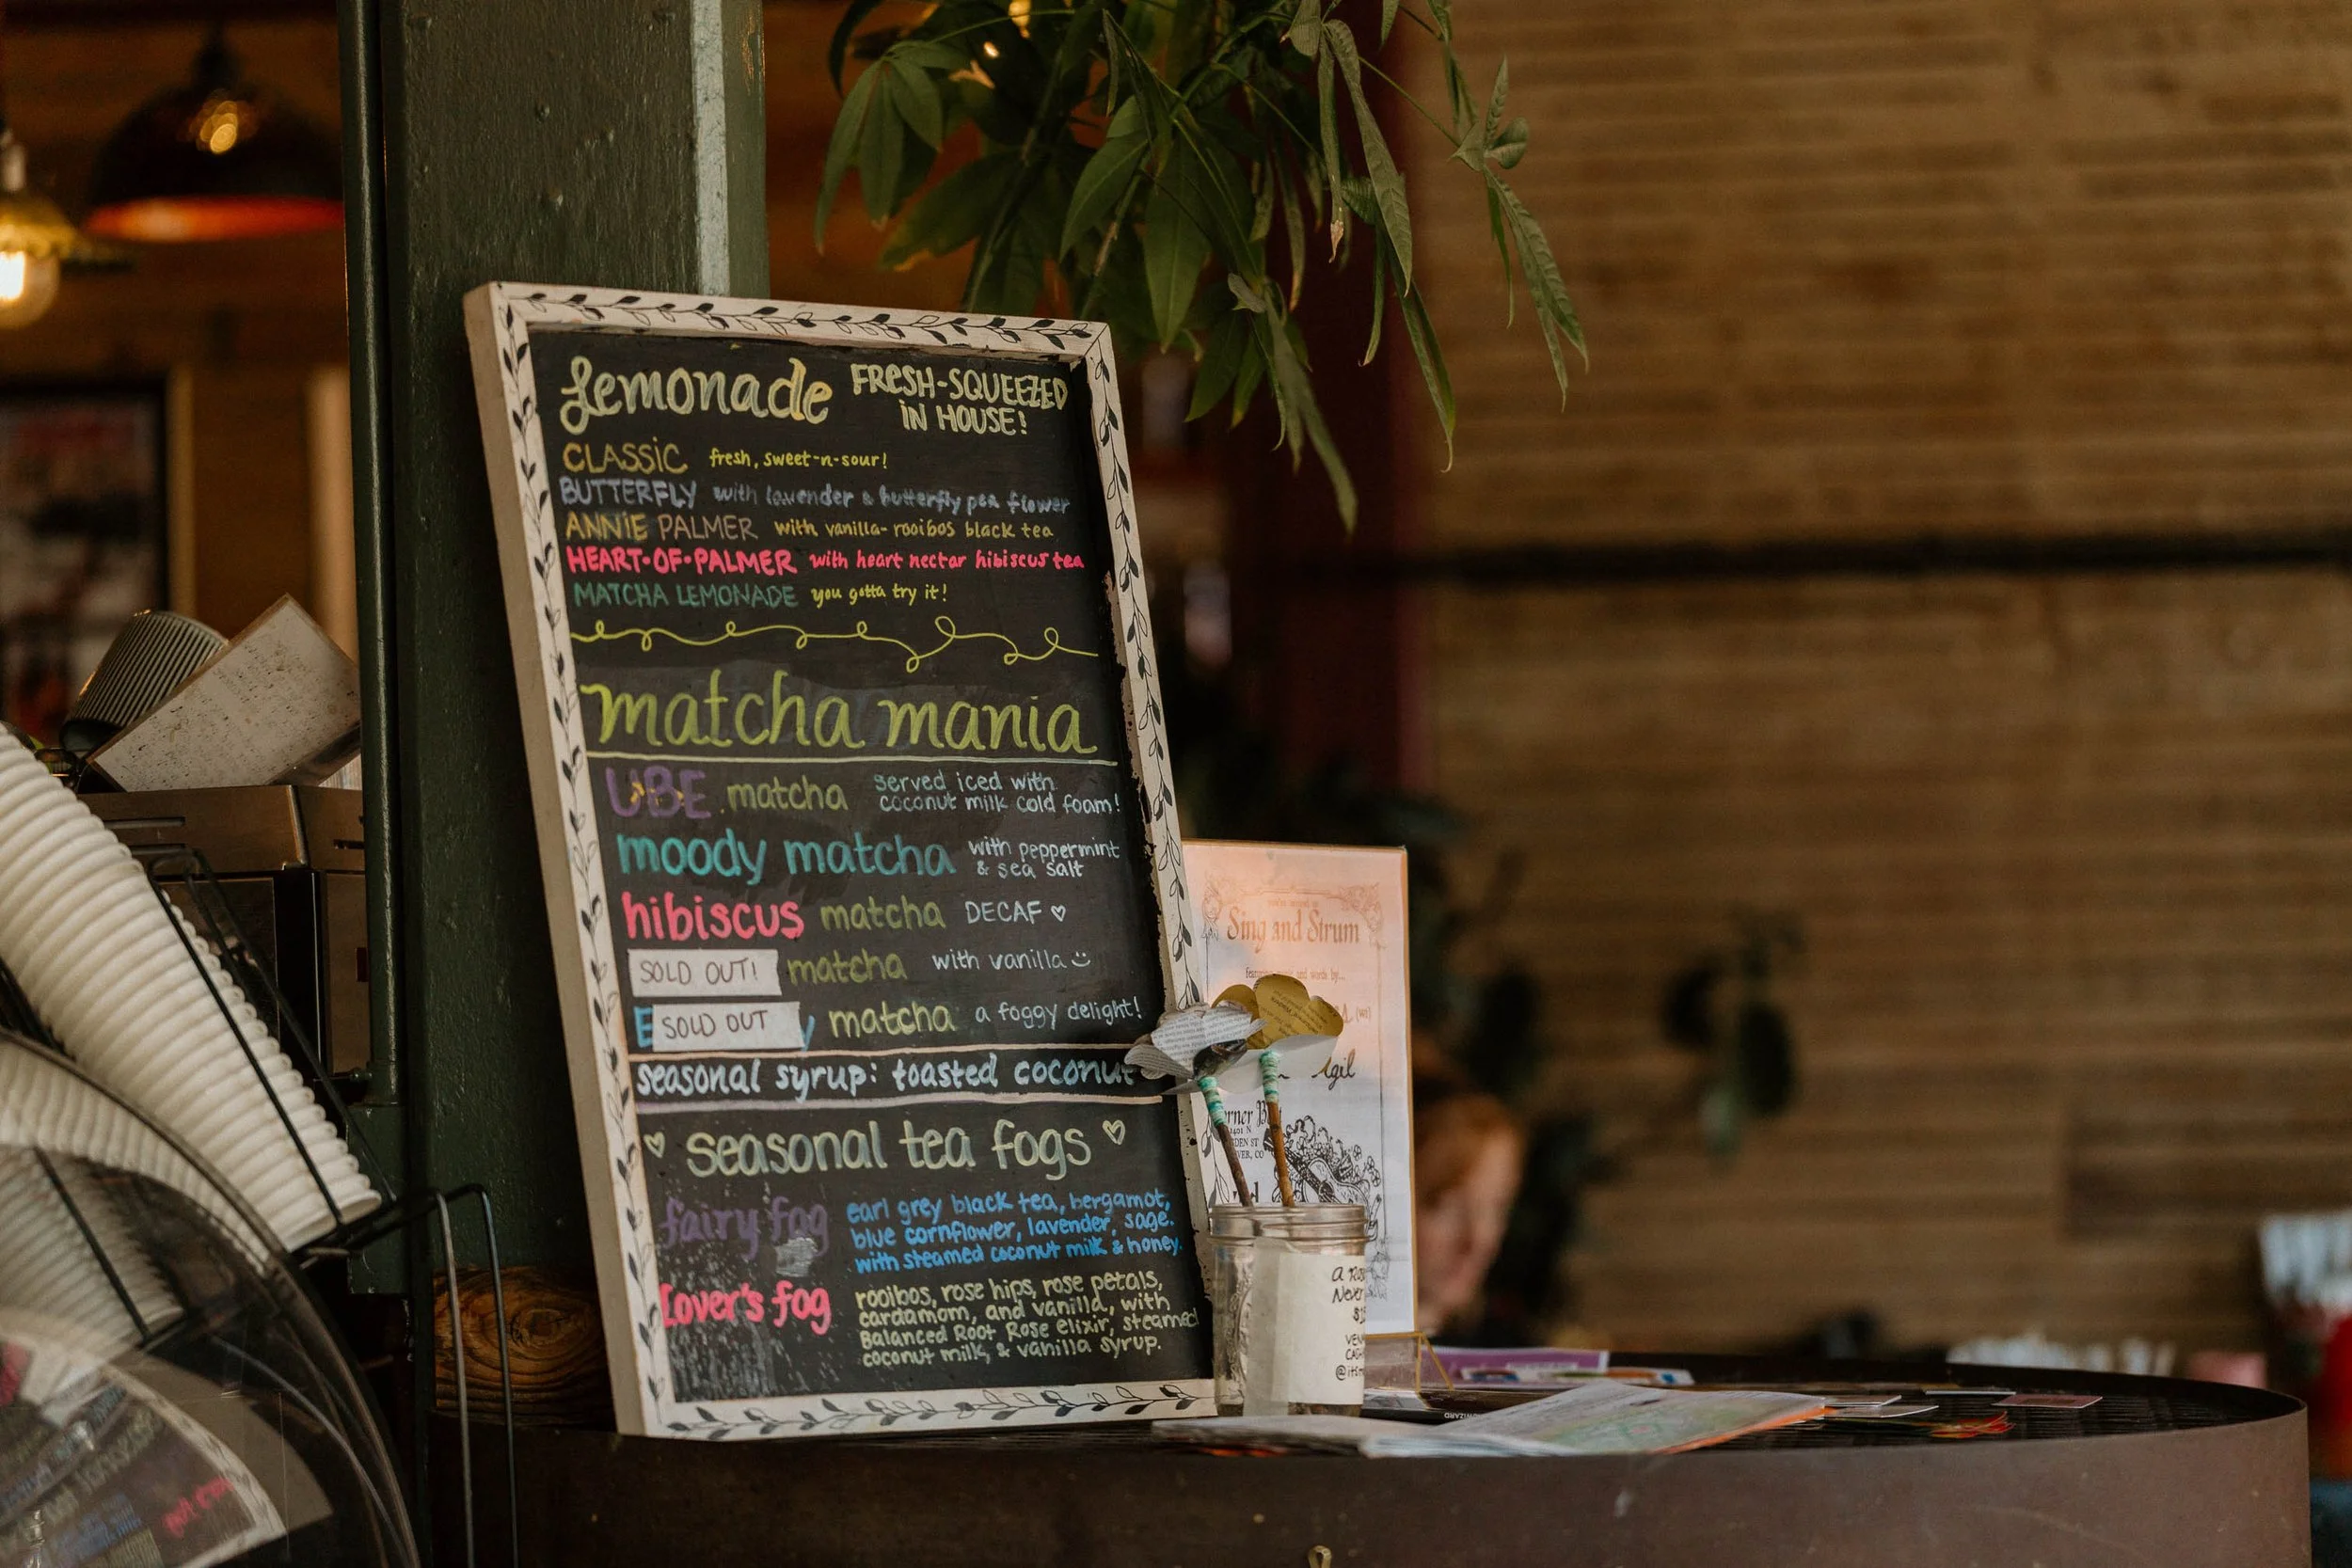 Lemonade FRESH-SQUEEZED
IN HOUSE!
CLASSIC fresh, sweet-n-sour!
BUTTERFLY with lavender & butterfly pea flower
ANNIE PALMER with vanilla-rooibos black tea
HEART-OF-PALMER with heart nectar hibiscus tea
MATCHA LEMONADE you gotta try it!
matcha mania
UBE matcha served iced with
coconut milk cold foam!
moody matcha with peppermint
& sea salt
hibiscus matcha DECAF ♡
SOLD OUT! matcha with vanilla
SOLD OUT matcha a foggy delight!
seasonal syrup: toasted coconut
♡ seasonal tea fogs ♡
fairy fog earl grey black tea, bergamot,
blue cornflower, lavender, sage.
with steamed coconut milk & honey.
Lover's fog rooibos, rose hips, rose petals,
cardamom, and vanilla, with
Balanced Root Rose elixir, steamed
coconut milk, & vanilla syrup.
Sing and Strum
and words by...